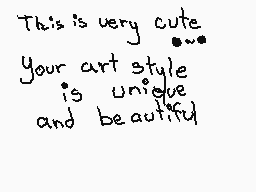 This is very cute
•~•
Your art style
is unique
and beautiful